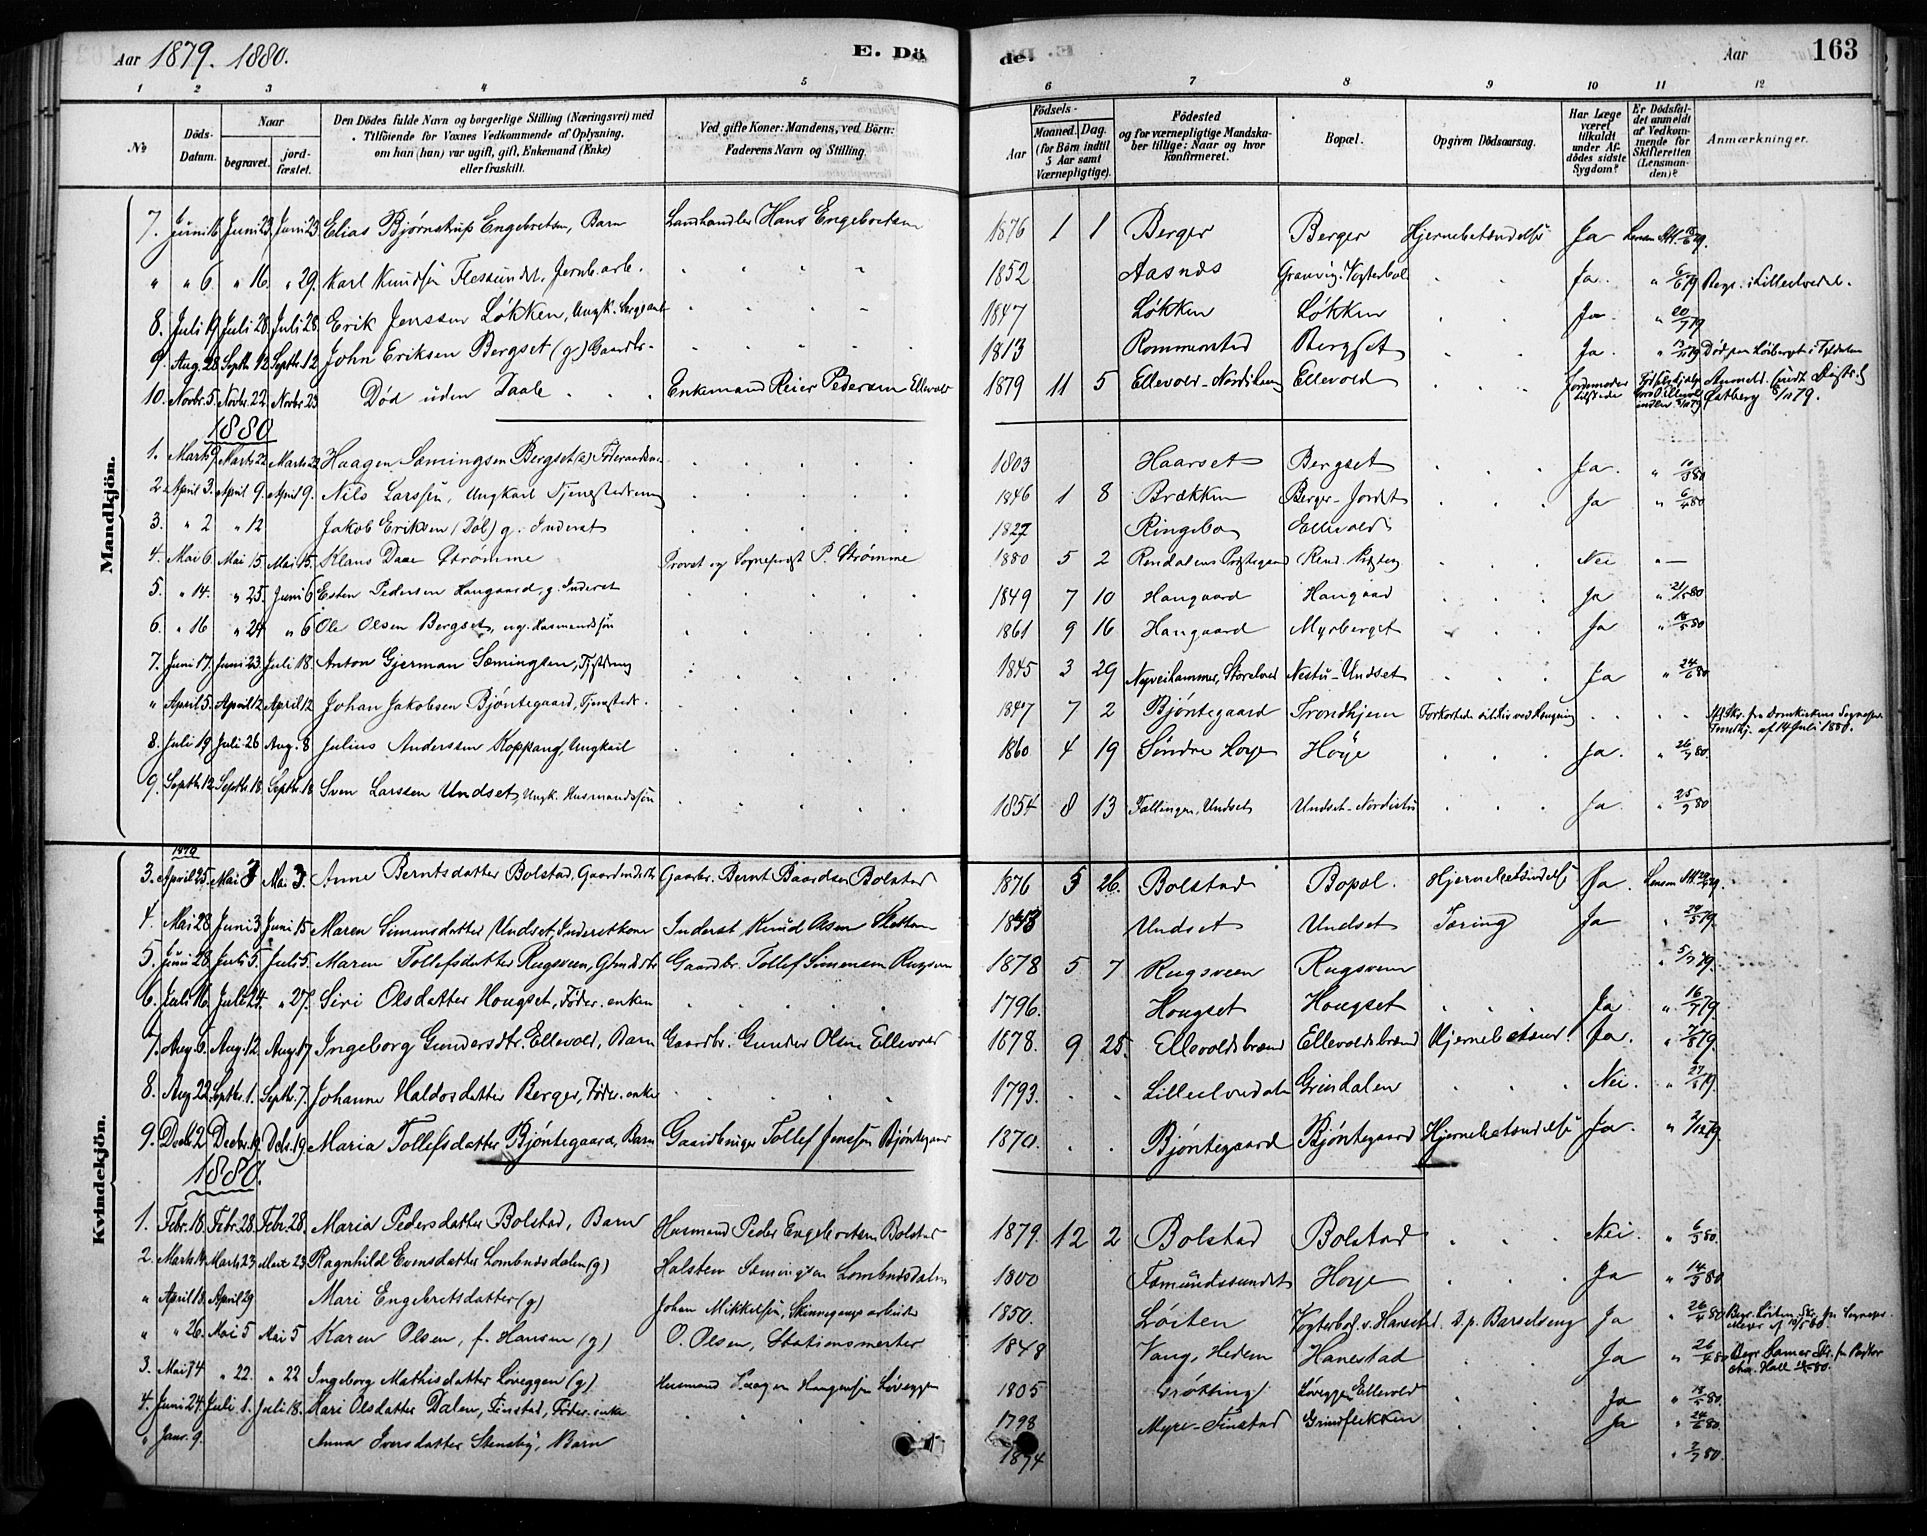 Aar 1879. 1880. E. Dö de. Aar 163
1 2 3 4 5 6 7 8 9 10 11 12
No Döds-Datum. Naar begravet. jordfæstet. Den Dödes fulde Navn og borgerlige Stilling (Næringsvei) med Tilföiende for Voxnes Vedkommende af Oplysning, om han (hun) var ugift, gift, Enkemand (Enke) eller fraskilt. Ved gifte Koner: Mandens, ved Börn: Faderens Navn og Stilling. Födsels- Aar Maaned. Dag. (for Börn indtil 5 Aar samt Værnepligtige). Födested og for værnepligtige Mandskaber tillige: Naar og hvor konfirmeret. Bopæl. Opgiven Dödsaarsag. Har Læge været tilkaldt under Afdödes sidste Sygdom? Er Dödsfaldet anmeldt af Vedkommende for Skifteretten (Lensmanden)? Anmærkninger.
Mandkjön.
7. Juni 16 Juni 23. Juni 23. Elias Bjørnstrup Engebretsen, Barn Landhandler Hans Engebretsen 1876 1 1 Berger Berger Hjernebetændelse Ja
" " 6. " 16. " 29. Karl Knudsen Flessundet. Jernb. arb. 1852 Aasnæs Ja. " 6/6 79 Begr. i Lilleelvedal.
8. Juli 19 Juli 28. Juli 28. Erik Jenssen Løkken, Ungk. 1847 Løkken Løkken Ja. " 20/7 79
9. Aug. 28 Septb. 12 Septb. 12 John Eriksen Bergset (g) Gaardbr. 1813 Rommenstad Bergset Ja.
10. Novbr. 5. Novbr. 22. Novbr. 23 Død uden Daab Enkemand Reier Pedersen Ellevold 1879 11 5 Ellevold Nordihaug Ellevold Jordmoder tilstede
1880
1. Marts 9. Marts 22 Marts 22 Haagen Sæmingsen Bergset (e) Föderaadsm. 1803 Haarset Bergset Ja. " 10/3 80
2 April 3. April 9. April 9. Nils Larssen, Ungkarl Tjenestedreng 1846 1 8 Brækken Berger-Jordet Ja " 6/4 80
3. " 2 " 12 Jakob Eriksen (Döl) g. Inderst 1827 Ringebo Ellevold
4. Mai 6. Mai 15. Mai 15. Klaus Daae Strømme Provst og Sogneprest P. Strømme 1880 5 2 Rendalens Præstegaard Nei " —
5. " 14. " 25. Juni 6 Esten Pedersen Haugaard, g. Inderst 1849 7 10 Haugaard Haugaard Ja " 21/5 80
6. " 16 " 24 " 6 Ole Olsen Bergset, ug. Husmandssön 1861 9 16 Haugaard Myrberget Ja " 18/5 80
7. Juni 17. Juni 23 Juli 18. Anton Gjerman Sæmingsen, Tjdreng 1845 3 29 Nestu-Undset Ja " 24/6 80
" April 5. April 12 April 12 Johan Jakobsen Bjøntegaard, Tjenestedr. 1847 7 2 Bjøntegaard Trondhjem Forkortede sit Liv ved Hængning af 14 Juli 1880.
8. Juli 19 Juli 26 Aug. 8 Julius Anderssen Koppang, Ungkarl 1860 4 19 Søndre Høye Høye Ja. " 26/7 80.
9. Septb. 12 Septb. 18 Septb. 18 Sven Larssen Undset, Ungk. Husmandssön 1854 8 13 Fællingen, Undset Undset-Nordistu Ja " 25/9 80
Kvindekjön.
1879
3. April 25. Mai 3 Mai 3. Anne Berntsdatter Bolstad. Gaardbr. Bernt Baardsen Bolstad 1876 5 26. Bolstad Bopæl. Hjernebetændelse Ja.
4. Mai 28 Juni 3 Juni 15 Maren Simensdatter Undset, Inderstkone Inderst Knud Olsen 1843 Undset Undset Tæring Ja " 29/5 79.
5. Juni 28. Juli 5. Juli 5. Maren Tollefsdatter Rugsveen, Gaardbr. Tollef Simensen Rugsveen 1878 5 7 Rugsveen Rugsveen " 5/7 79.
6. Juli 16. Juli 24. " 27. Siri Olsdatter Hougset, Föder. enken 1796. Hougset Hougset Ja " 16/7 79.
7. Aug. 6. Aug. 12. Aug. 17 Ingeborg Gundersdtr. Ellevold, Barn Gaardbr. Gunder Olsen Ellevold 1878. 9 25. Ellevoldsbrænd Ellevoldsbrænd Hjernebetænd. Ja. " 7/8 79.
8. Aug. 22 Septb. 1. Septb. 7. Johanne Haldosdatter Berger, Föder. enke 1793. Lilleelvedalen Grindalen Nei. " 27/8 79
9. Decb. 2. Decbr. 19. Dcb. 19. Maria Tollefsdatter Bjøntegaard, Barn Gaardbruger Tollef Jenssen Bjøntegaard 1870. Bjøntegaard Bjøntegaard Hjernebetændelse Ja. " 2/12 79
1880.
1. Febr. 18. Febr. 28. Febr. 28. Maria Pedersdatter Bolstad, Barn Husmand Peder Engebretsen Bolstad 1879. 12 2 Bolstad Bolstad Nei. " 6/3 80.
2. Marts 14. Marts 23 Mart 23 Ragnhild Evensdatter Lombnæsdalen (g) Halsten Sæmingsen Lombnæsdalen 1800 Fæmundssundet Høye Ja " 14/3 80
" April 18. April 29 Mari Engebretsdatter (g) Johan Mikkelsen, 1850. Løiten Vogterbol. v. Hanestad. D. p. Barselseng Ja " 26/4 80
" " 26. Mai 5 Mai 5 Karen Olsen, f. Hansen (g) O. Olsen, Stationsmester 1848 Vang, Hedem Hanestad Ja " 26/4 80
3. Mai 14 " 22. " 22 Ingeborg Mathisdatter Løveggen (g) Husmand Haagen Haagensen Løveggen 1805 Løveggen Ellevold Ja " 18/5 80.
4. Juni 24. Juli 1. Juli 18. Mari Olsdatter Dalen, Finstad, Föder. enke 1798 Myre-Finstad Grindflekken Ja " 24/6 80.
" Janr. 9. Anna Iversdatter Stensby, Barn 1874